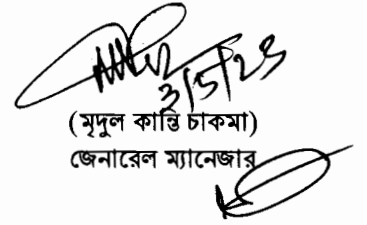 3/5/23
(মৃদুল কান্তি চাকমা)
জেনারেল ম্যানেজার